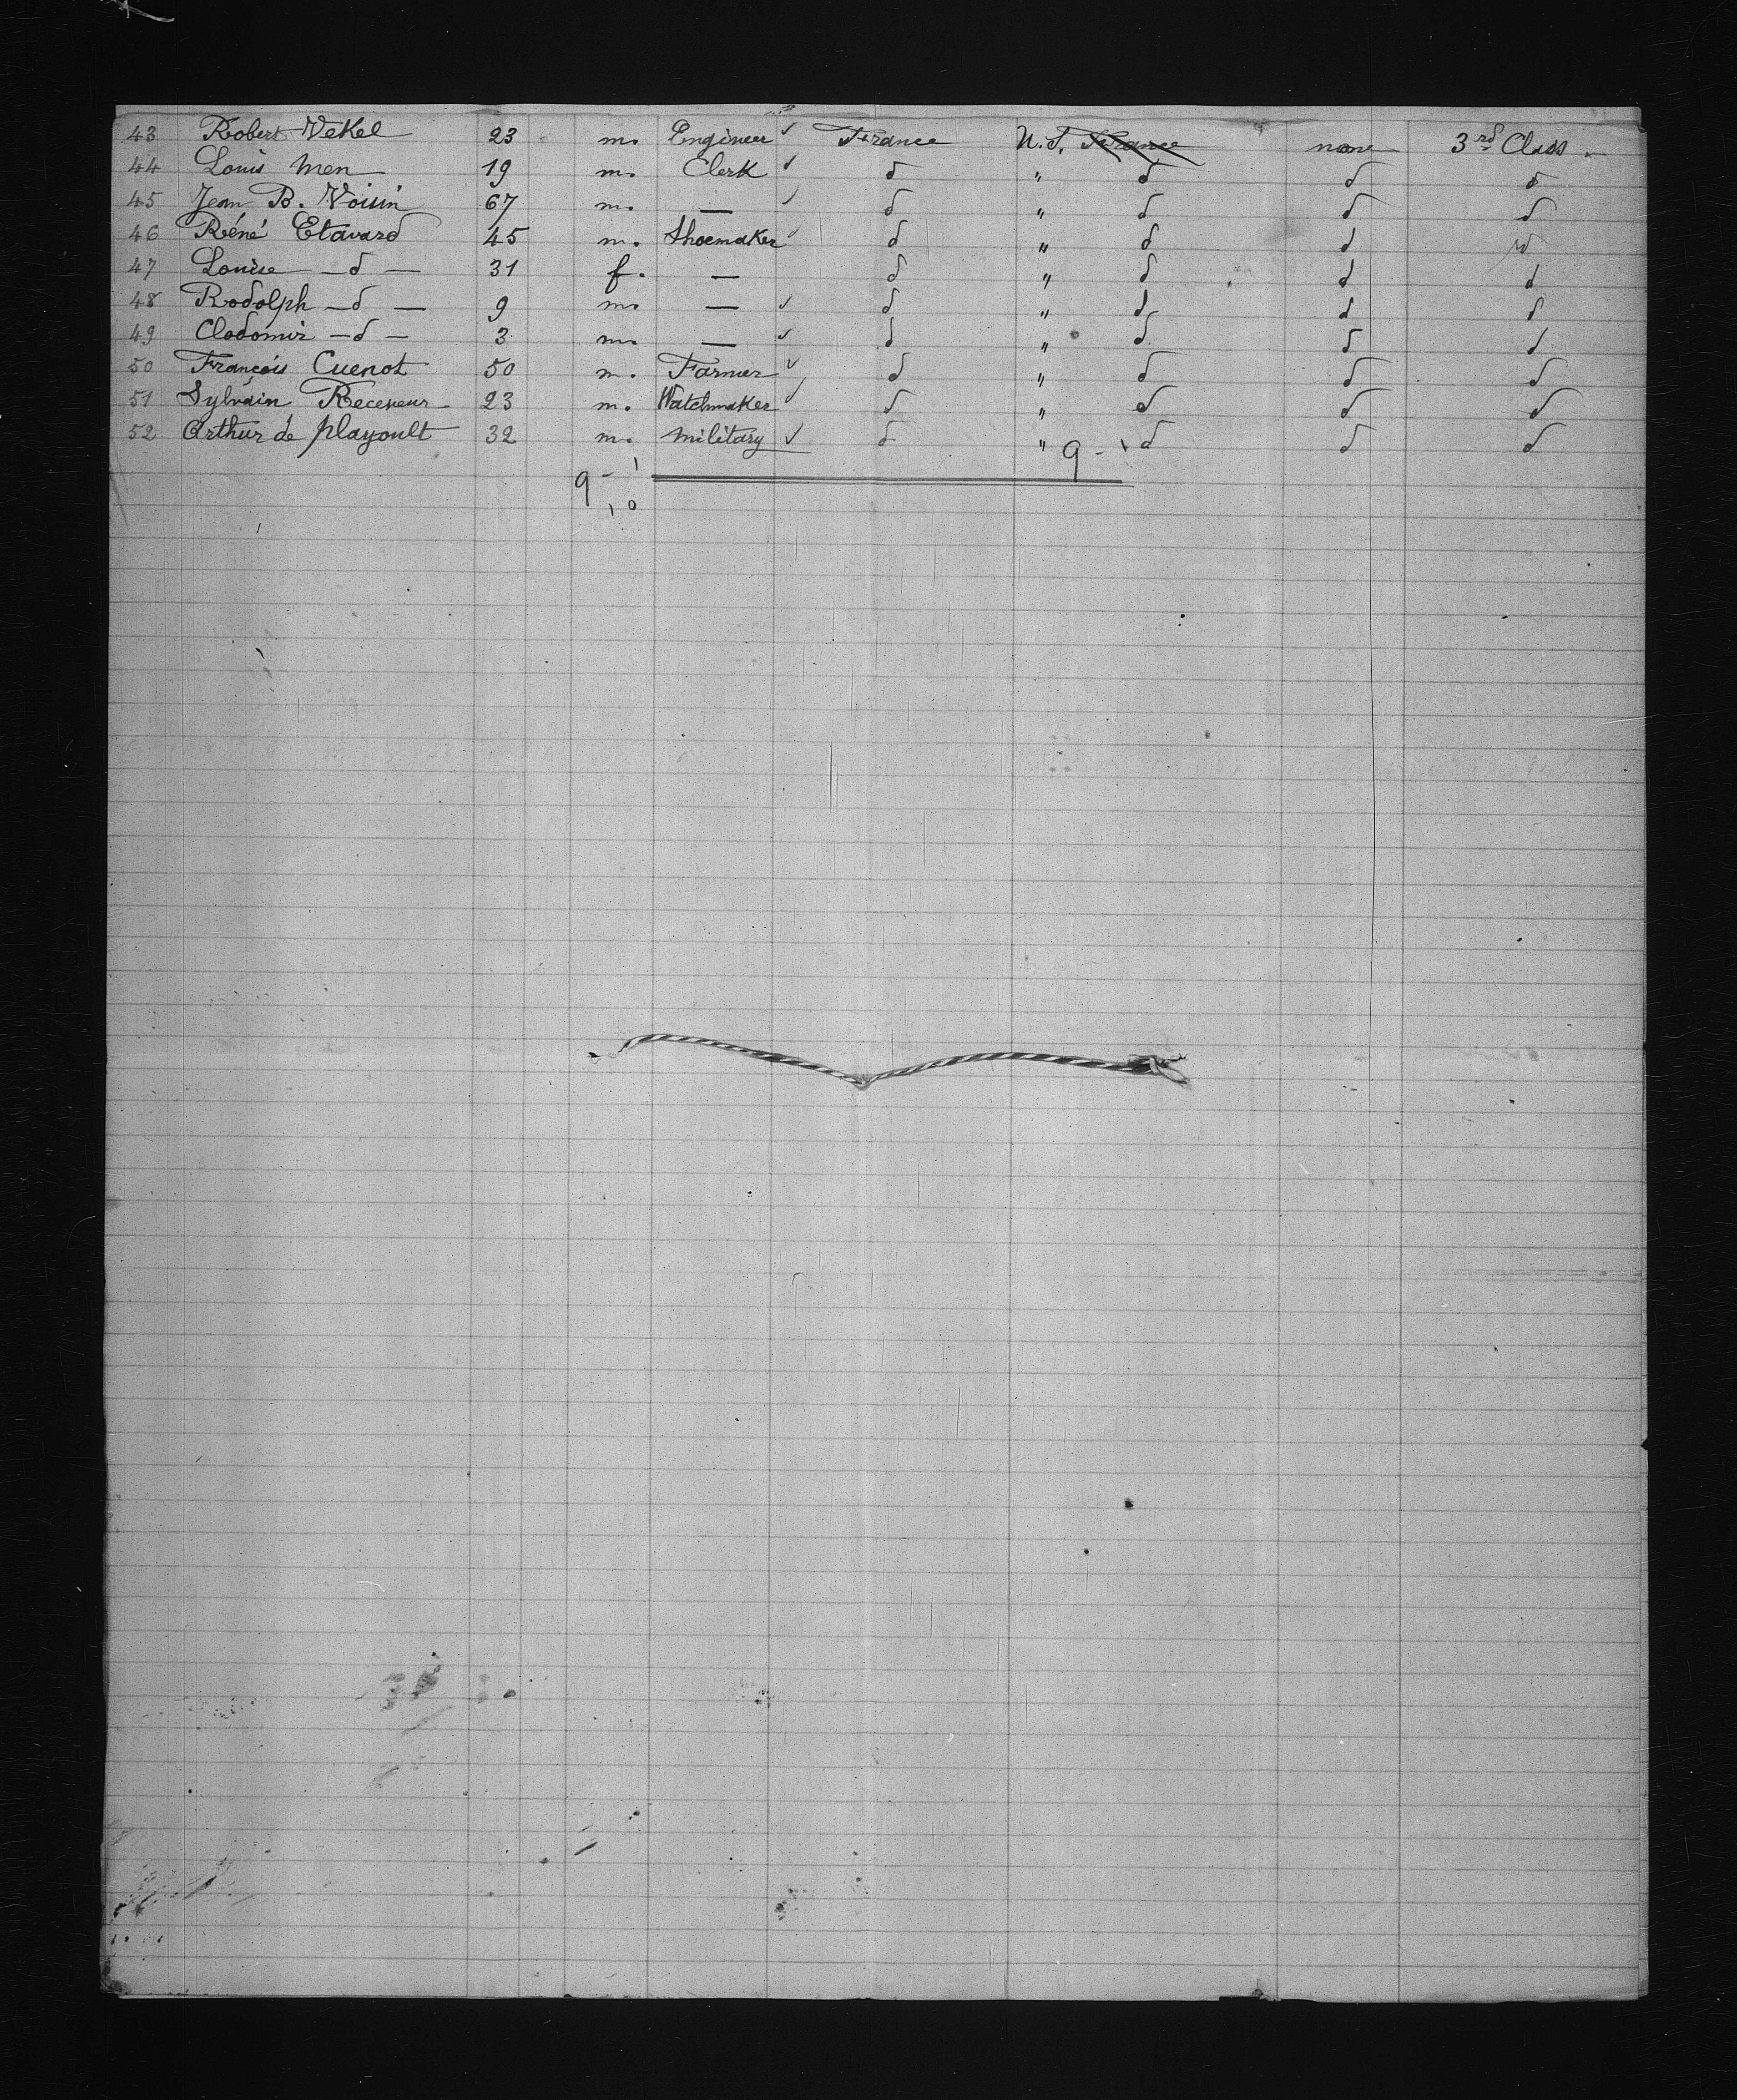 43 Robert Vekel 23 m. Engineer ✓ France U.S. France none 3rd Class.
44 Louis Men 19 m. Clerk ✓ d " d d d
45 Jean B. Voisin 67 m. — ✓ d " d d d
46 Réné Etavard 45 m. Shoemaker ✓ d " d d d
47 Louise —d— 31 f. — d " d d d
48 Rodolph —d— 9 m. — ✓ d " d d d
49 Clodomir —d— 3 m. — ✓ d " d d d
50 François Cuenot 50 m. Farmer ✓ d " d d d
51 Sylvain Receveur 23 m. Watchmaker ✓ d " d d d
52 Arthur de Playoult 32 m. Military ✓ d " d d d
9 - 1
9 - 1
10